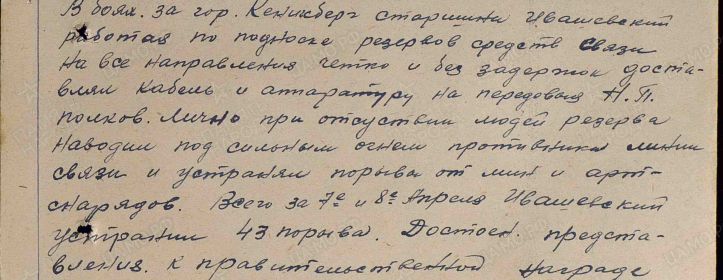 В боях. за гор. Кенигсберг старшина Ивашевский
работая по подноске резервов средств связи
на все направления четко и без задержек доста-
влял кабель и аппаратуру на передовые Н.П.
полков. Лично при отсуствии людей резерва
наводил под сильным огнем противника линии
связи и устранял порывы от мин и арт-
снарядов. Всего за 7е и 8е Апреля Ивашевский
устранил 43 порыва. Достоен предста-
вления. к правительственной награде